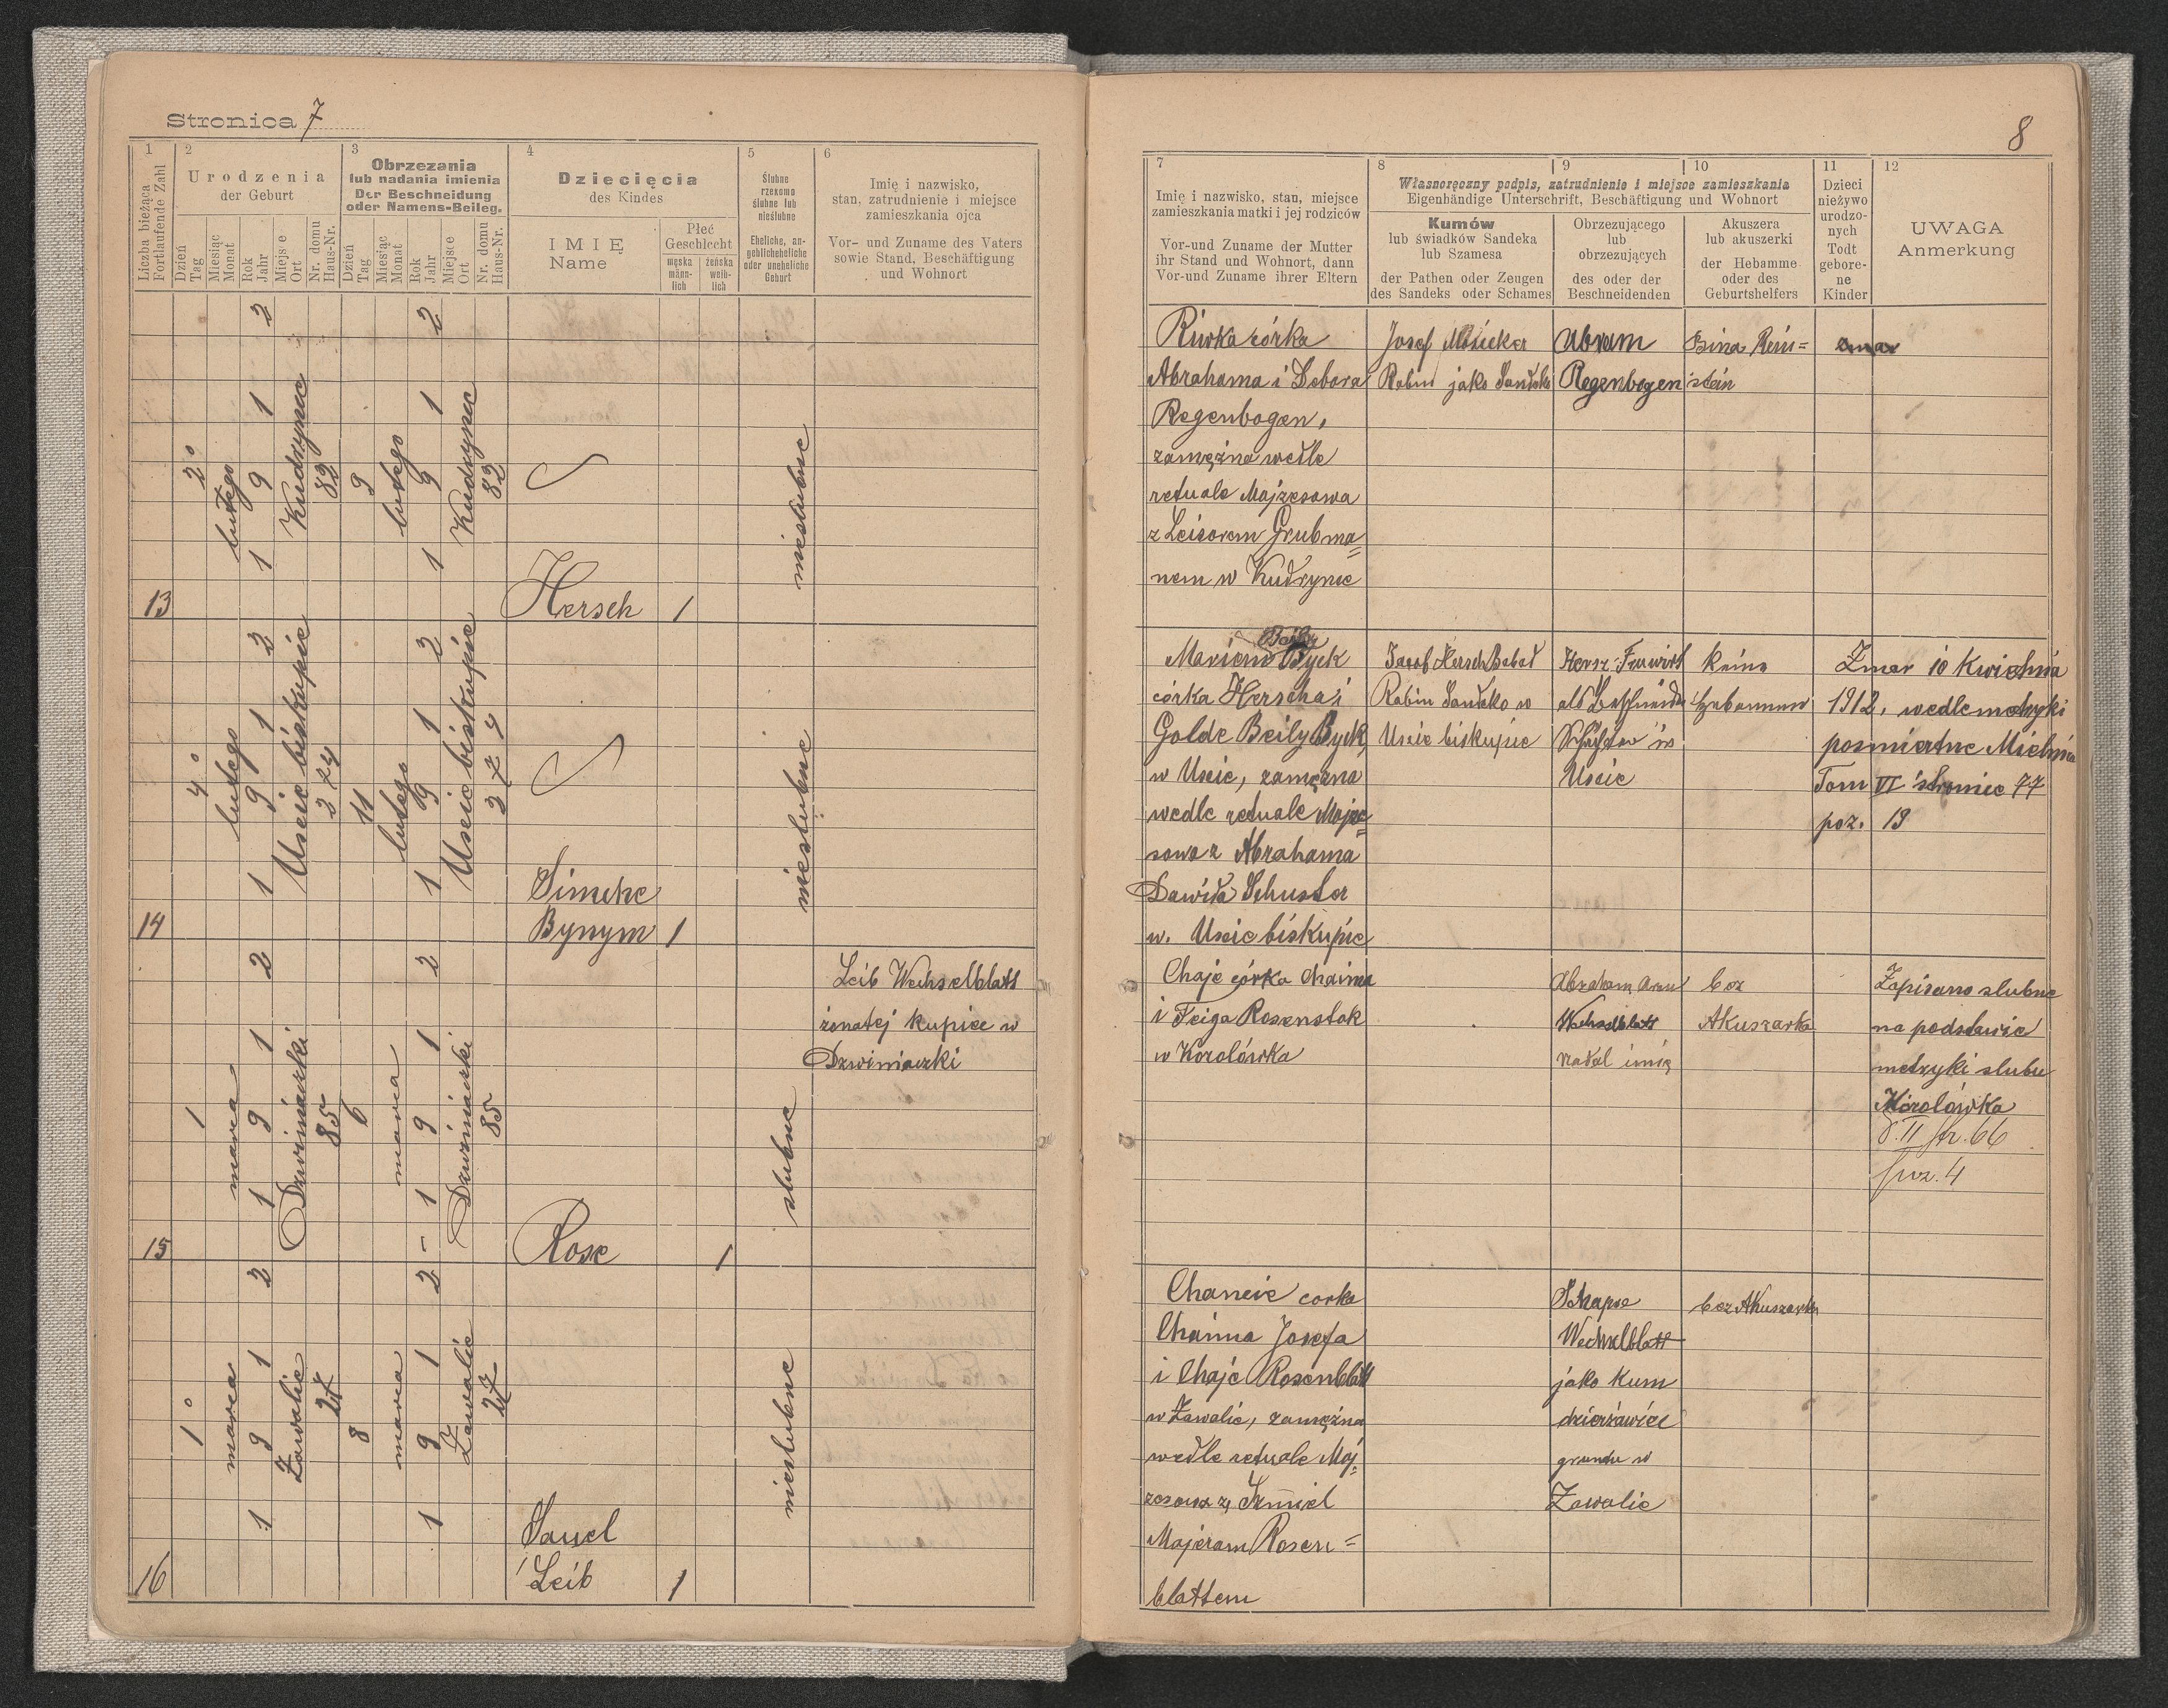 Stronica 7
1
2
3
4
5
6
Liczba bieżąca
Fortlaufende Zahl
Urodzenia
der Geburt
Obrzezania
lub nadania imienia
Der Beschneidung
oder Namens-Beileg.
Dziecięcia
des Kindes
Ślubne
rzekomo
ślubne lub
nieślubne
Eheliche, an-
geblicheheliche
oder uneheliche
Geburt
Imię i nazwisko,
stan, zatrudnienie i miejsce
zamieszkania ojca
Vor- und Zuname des Vaters
sowie Stand, Beschäftigung
und Wohnort
Dzień
Tag
Miesiąc
Monat
Rok
Jahr
Miejsce
Ort
Nr. domu
Haus-Nr.
Dzień
Tag
Miesiąc
Monat
Rok
Jahr
Miejsce
Ort
Nr. domu
Haus-Nr.
IMIĘ
Name
Płeć
Geschlecht
męska
männ-
lich
żeńska
weib-
lich
13
2
lutego
1912
Kudrynce
82
9
lutego
1912
Kudrynce
82
Hersch
1
nieslubne
14
4
lutego
1912
Uscie biskupie
274
11
lutego
1912
Uscie biskupie
274
Simche
Bynym
1
nieslubne
15
1
marca
1912
Dzwiniaczki
85
6
marca
1912
Dzwiniaczki
85
Rose
1
slubne
Leib Wechselblatt
żonatej kupiec w
Dzwiniaczki
16
1
marca
1912
Zawalie
27
8
marca
1912
Zawalie
27
Samel
Leib
1
nieslubne
8
7
8
9
10
11
12
Imię i nazwisko, stan, miejsce
zamieszkania matki i jej rodziców
Vor-und Zuname der Mutter
ihr Stand und Wohnort, dann
Vor-und Zuname ihrer Eltern
Własnoręczny podpis, zatrudnienie i miejsce zamieszkania
Eigenhändige Unterschrift, Beschäftigung und Wohnort
Kumów
lub świadków Sandeka
lub Szamesa
der Pathen oder Zeugen
des Sandeks oder Schames
Obrzezującego
lub
obrzezujących
des oder der
Beschneidenden
Akuszera
lub akuszerki
der Hebamme
oder des
Geburtshelfers
Dzieci
nieżywo
urodzo-
nych
Todt
gebore-
ne
Kinder
UWAGA
Anmerkung
Riwka córka
Abrahama i Debora
Regenbogen,
zamężna wedle
retuale Majzesowa
z Leisorem Grubma=
nem w Kudrynce
Josef
Rabin jako Sandeke
Abram
Regenbogen
Bina Rein=
stein
Mariem Byck
córka Herscha i
Golde Beily Byck
w Uscie, zamężna
wedle retuale Majze=
sowa z Abrahama
Dawida Schuster
w. Uscie biskupie
Jacob Hersch Babad
Rabin Sandeko w
Uscie biskupie
Hersz
als
in
Uscie
Zmar 10 Kwietnia
1912, wedle metryki
posmiertne Mielnica
Tom VI stronice 77
poz. 19
Chaje córka Chaima
i Feiga Rosenstok
w Korolówka
Abraham
Wechselblatt
nadal imię
bez
Akuszarka
Zapisano slubne
na podstawie
metryki slubu
Korolówka
T. II str. 66
poz. 4
Chancie corka
Chaima Josefa
i Chaje Rosenblatt
w Zawalie, zamężna
wedle retuale Maj=
zesowa zę Szmiel
Majeram Rosen=
blattem
Schapse
Wechselblatt
jako Kum
dzierżawice
gruntu w
Zawalie
bez Akuszarka